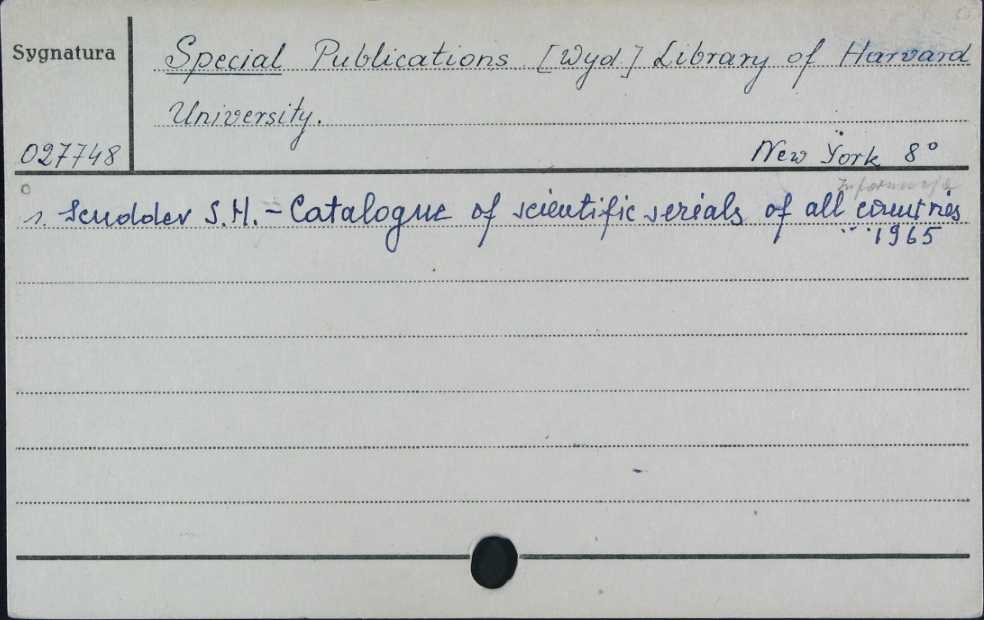 Sygnatura
Special Publications [Wyd] Library of Harvard
University.
027748
New York 8°
Informacja
1. Scudder S.H. - Catalogue of scientific serials of all countries
1965